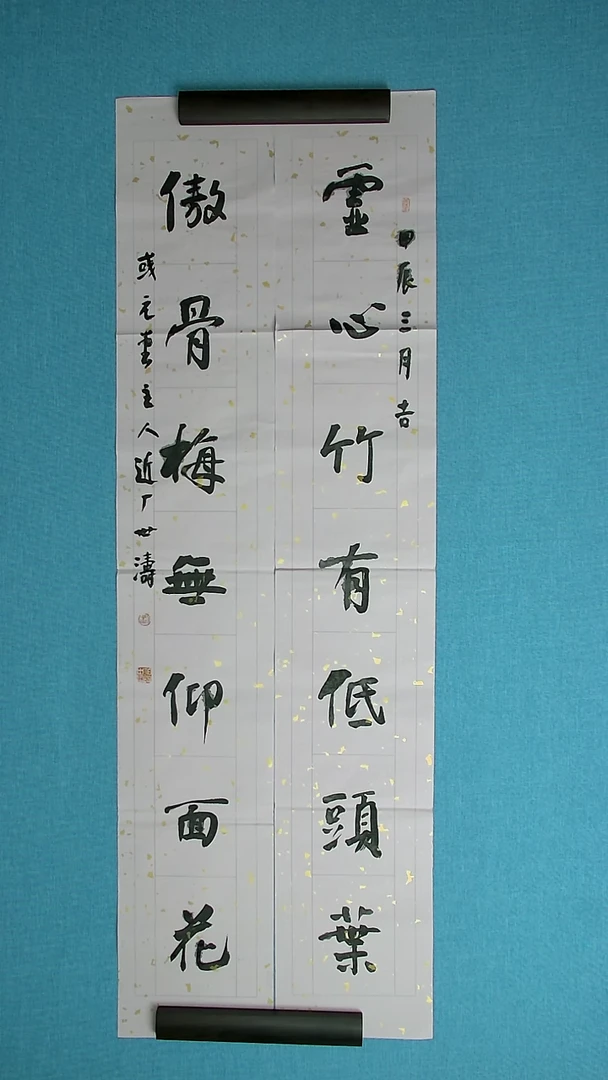 靈心竹有低頭葉
甲辰三月吉
傲骨梅無仰面花
或元堂主人近厂世濤